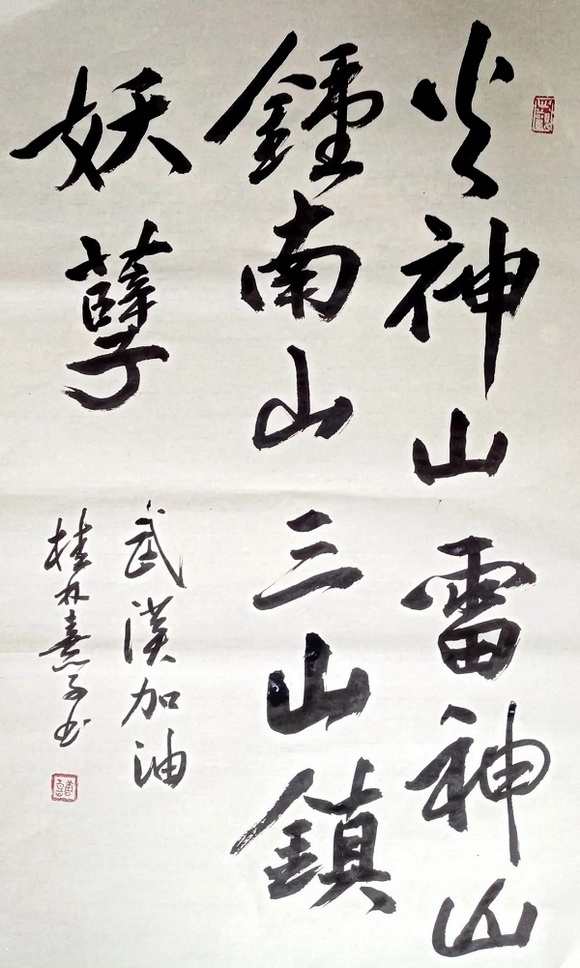 火神山雷神山
鍾南山三山鎮
妖孽
武漢加油
桂林熹子书